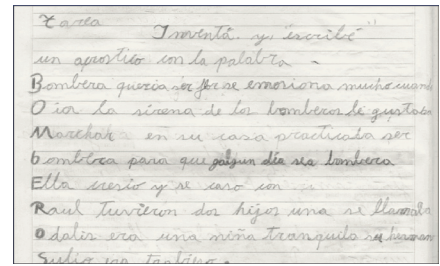 tarea
Inventá y "escribí"
un acrostico con la palabra -
Bombera queria ser Flor se emosiona mucho cuand
Oia la sirena de los bomberos le gustaba
Marchar en su casa practicaba ser
bombera para que algun día sea bombera
Ella cresio y se caso con
Raul tuvieron dos hijos una se llamaba
odalis era una niña tranquila su herman
Sulio era tambien.